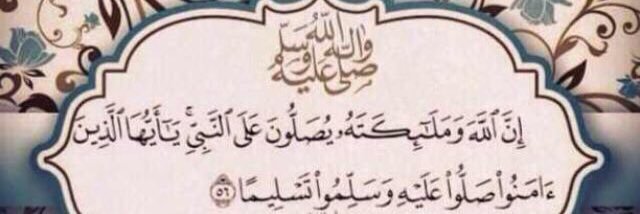 صلى الله عليه وسلم
إِنَّ ٱللَّهَ وَمَلَـٰٓئِكَتَهُۥ يُصَلُّونَ عَلَى ٱلنَّبِىِّ ۚ يَـٰٓأَيُّهَا ٱلَّذِينَ
ءَامَنُوا۟ صَلُّوا۟ عَلَيْهِ وَسَلِّمُوا۟ تَسْلِيمًا ۝٥٦